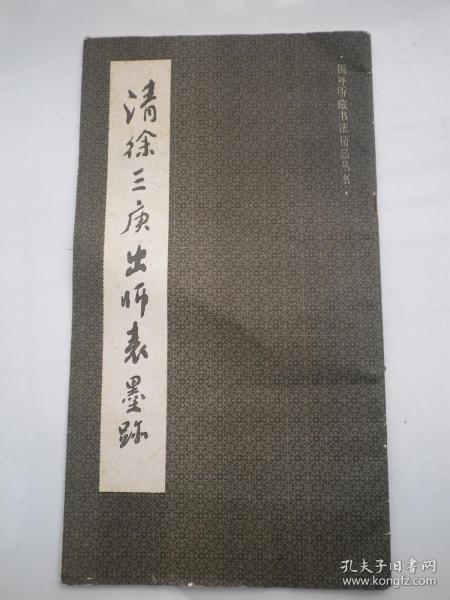 ·国外所藏书法精品丛书·
清徐三庚出师表墨跡
孔夫子旧书网
www.kongfz.com